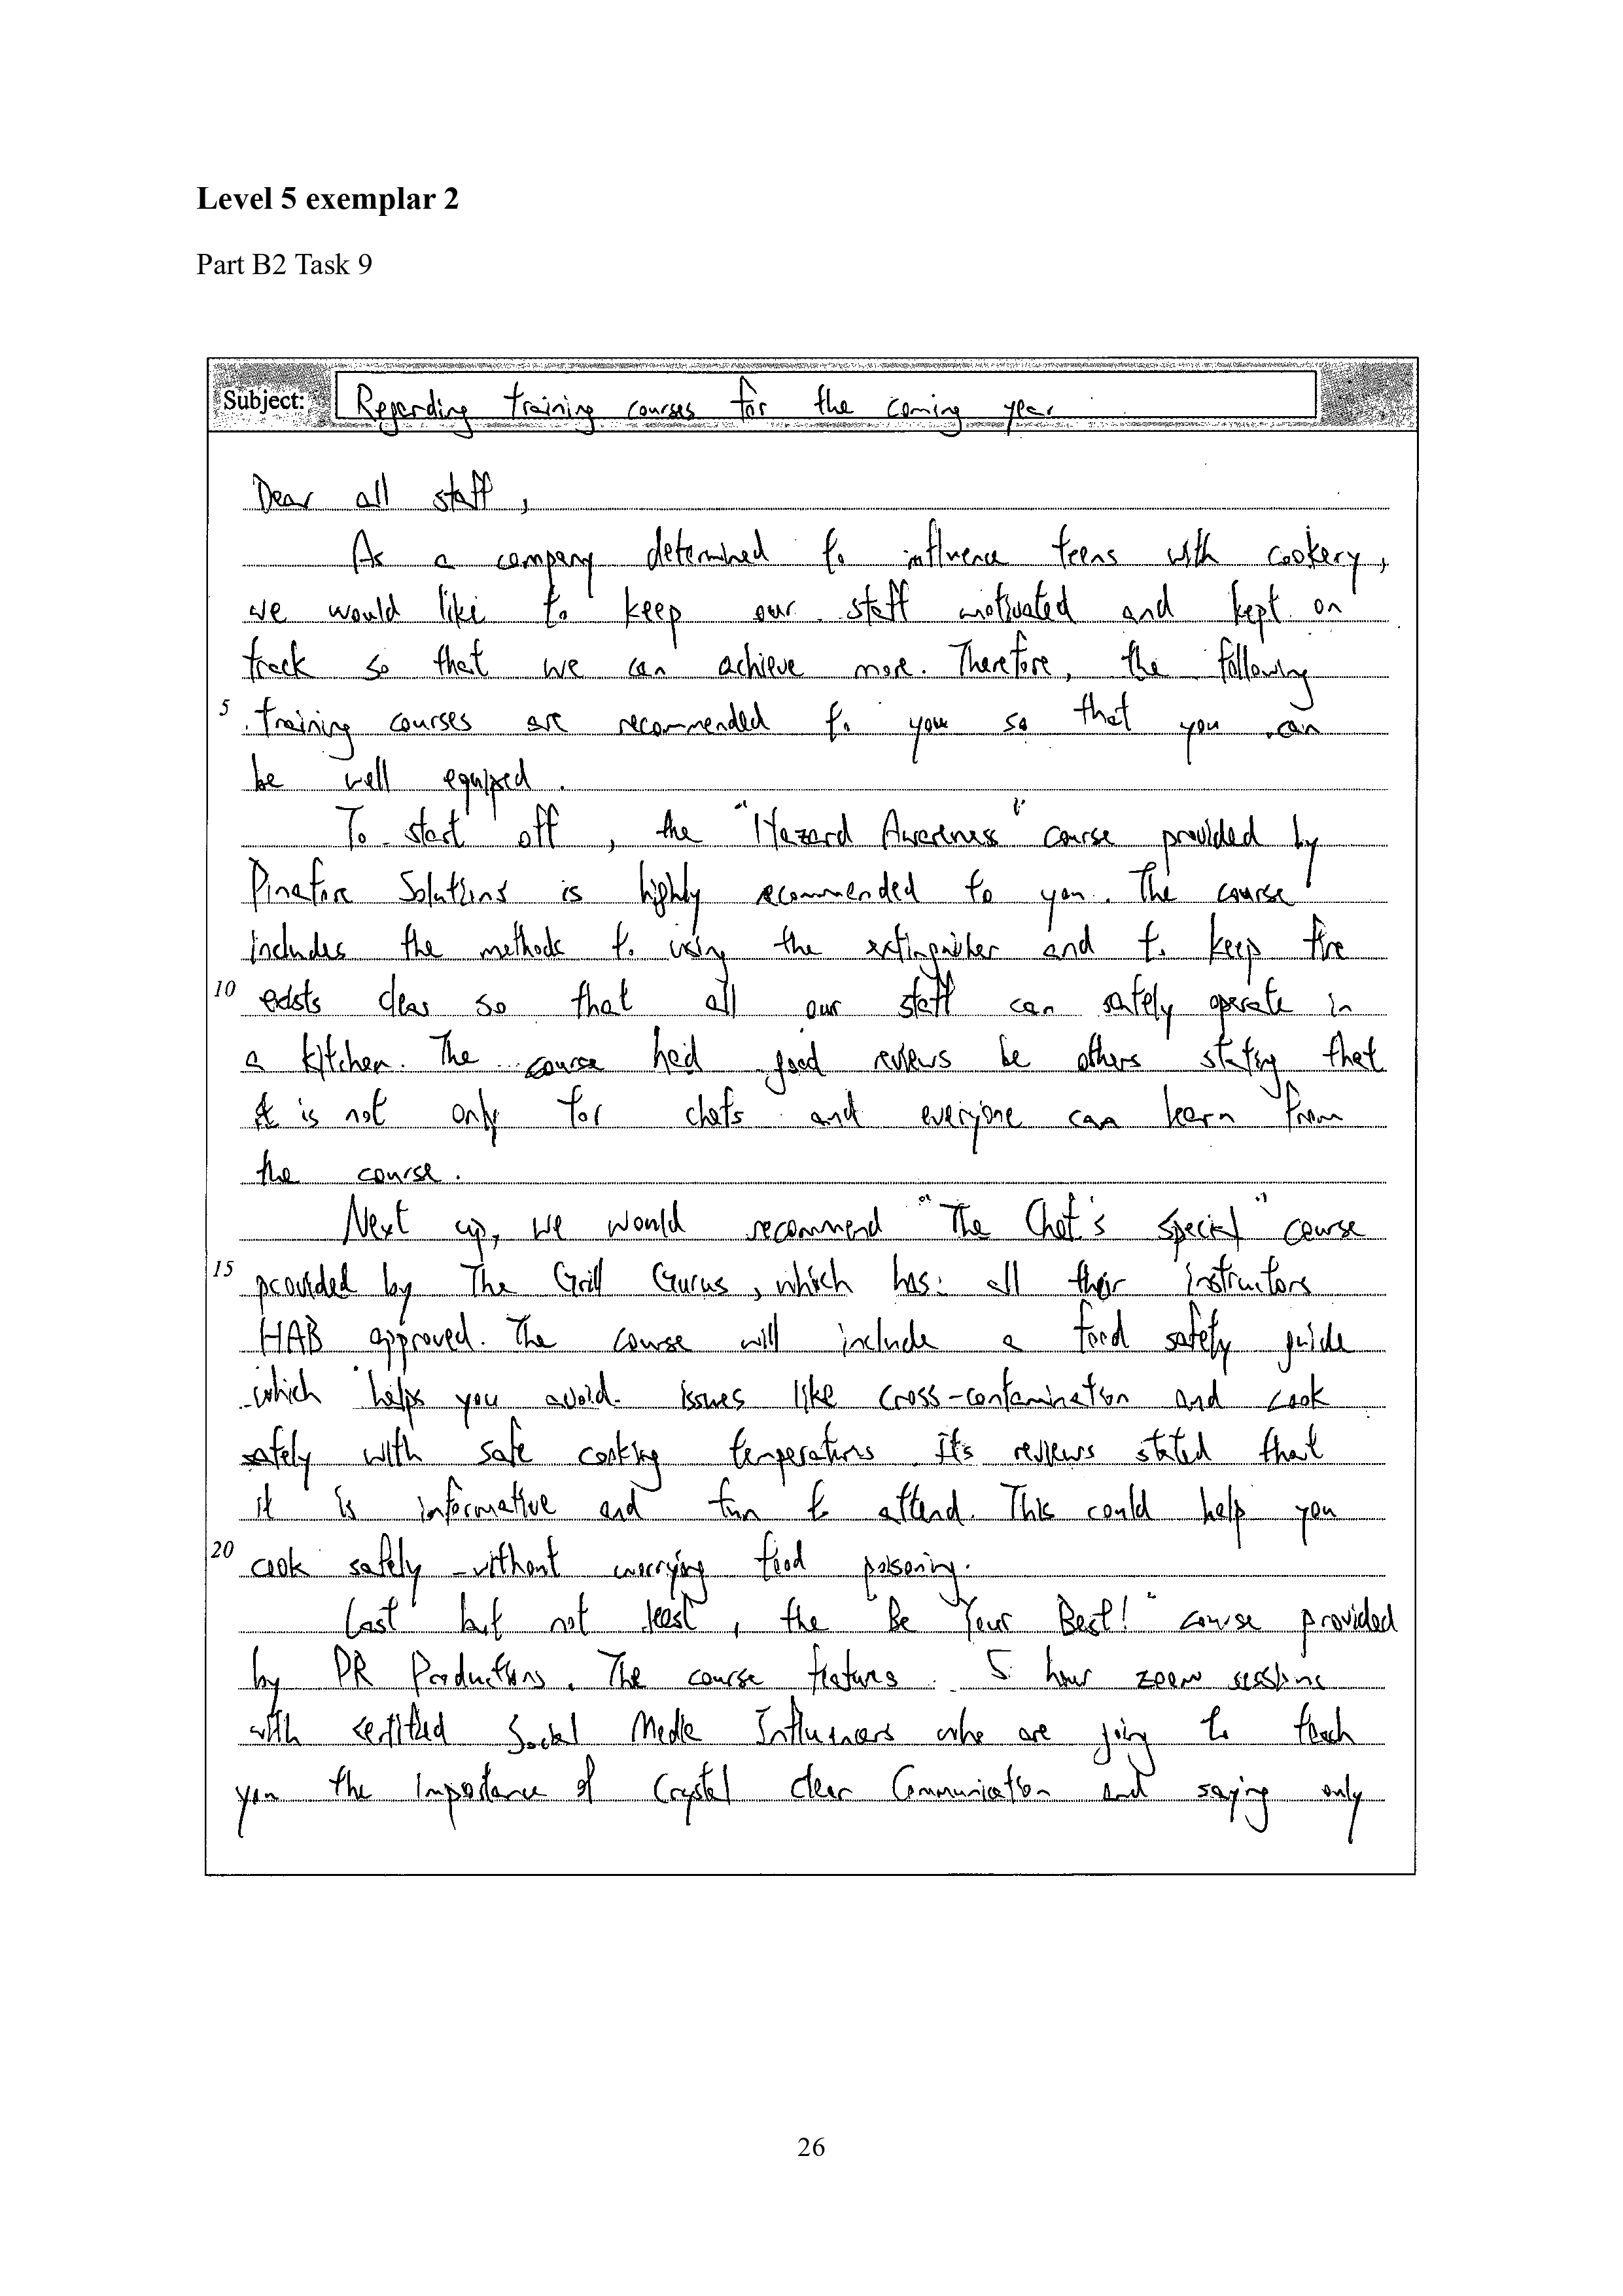 Level 5 exemplar 2
Part B2 Task 9
Subject: Regarding training courses for the coming year
Dear all staff,
As a company determined to influence teens with cookery,
we would like to keep our staff motivated and kept on
track so that we can achieve more. Therefore, the following
5 training courses are recommended to you so that you can
be well equiped.
To start off, the "Hazard Awareness" course provided by
Pinafore Solutions is highly recommended to you. The course
includes the methods to using the extinguisher and to keep fire
10 exists clear so that all our staff can safely operate in
a kitchen. The course had good reviews be others stating that
it is not only for chefs and everyone can learn from
the course.
Next up, we would recommend "The Chef's special" course
15 provided by The Grill Gurus, which has all their instructors
HAB approved. The course will include a food safety guide
which helps you avoid issues like cross-contamination and cook
safely with safe cooking temperatures. It's reviews stated that
it is informative and fun to attend. This could help you
20 cook safely without worrying food poisoning.
Last but not least, the "Be Your Best!" course provided
by PR Productions. The course features 5 hour zoom sessions
with certified Social Media Influencers who are going to teach
you the importance of Crystal clear Communication and saying only
26